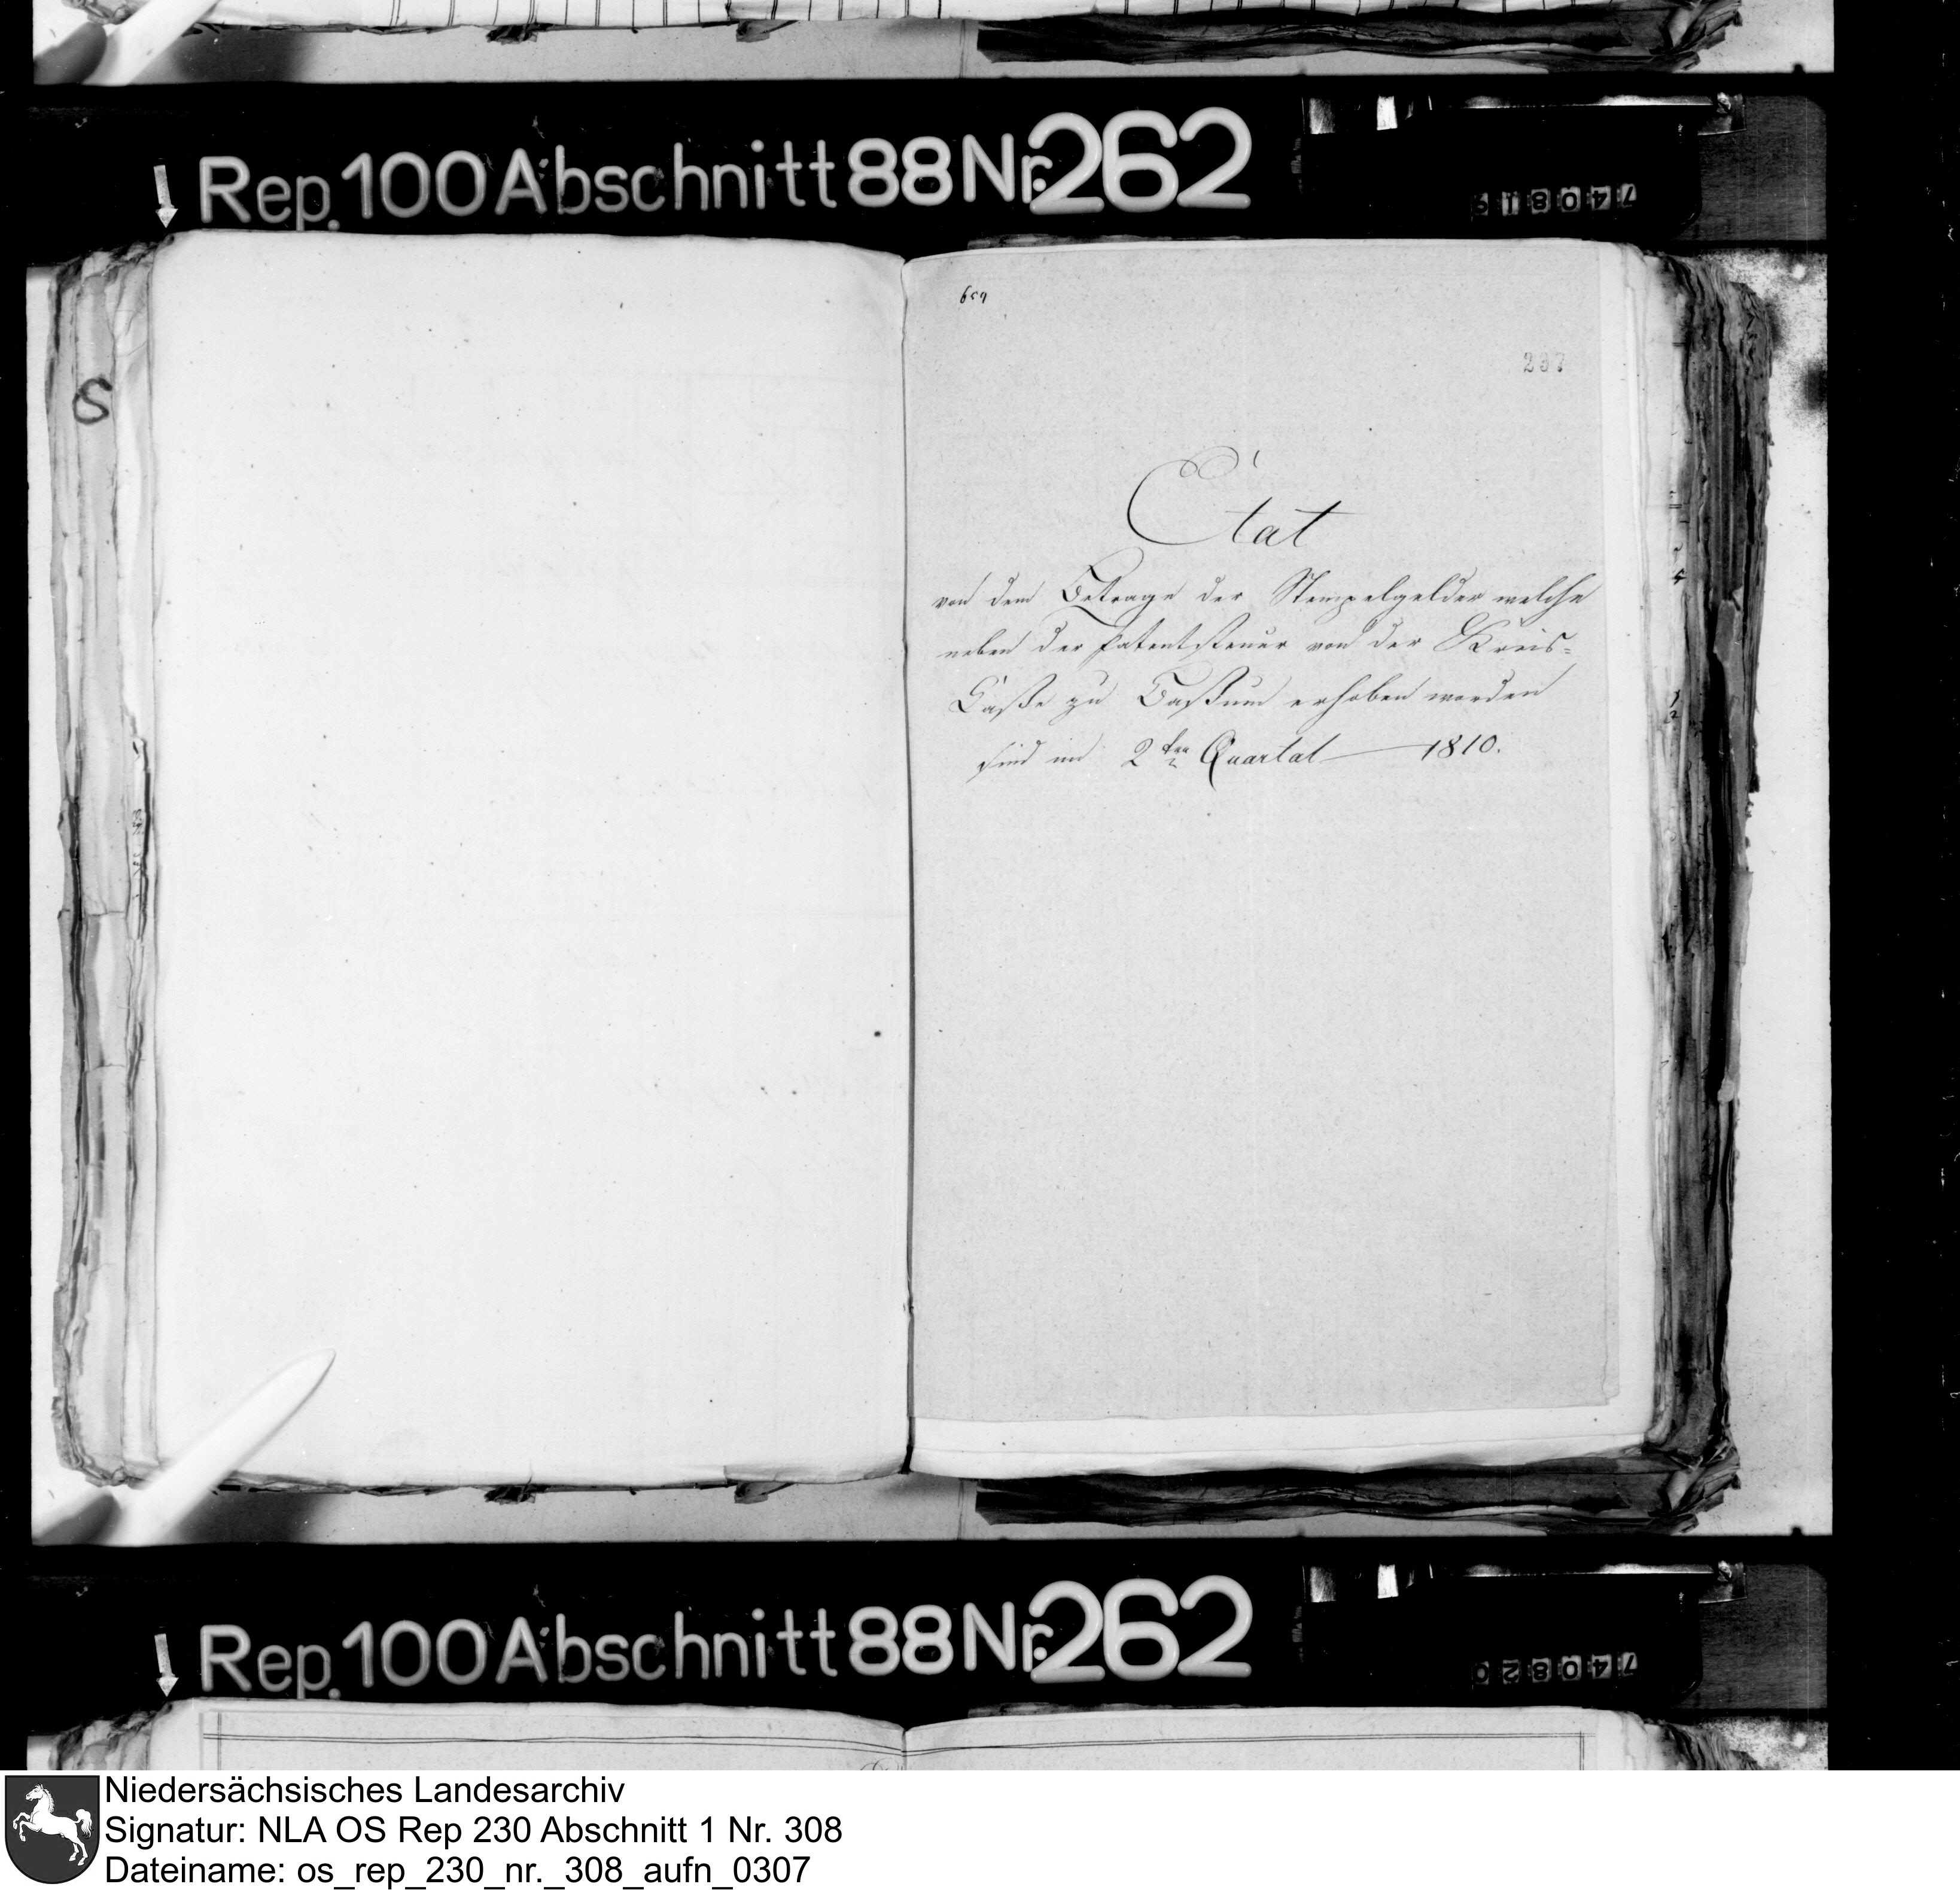 Rep. 100 Abschnitt 88 Nr. 262
740819
237
Etat
von dem Betrage der Stempelgelder welche
neben der Patentsteuer von der Kreis=
Casse zu Bassum erhoben worden
sind im 2ten Quartal — 1810.
Rep. 100 Abschnitt 88 Nr. 262
740820
Niedersächsisches Landesarchiv
Signatur: NLA OS Rep 230 Abschnitt 1 Nr. 308
Dateiname: os_rep_230_nr._308_aufn_0307